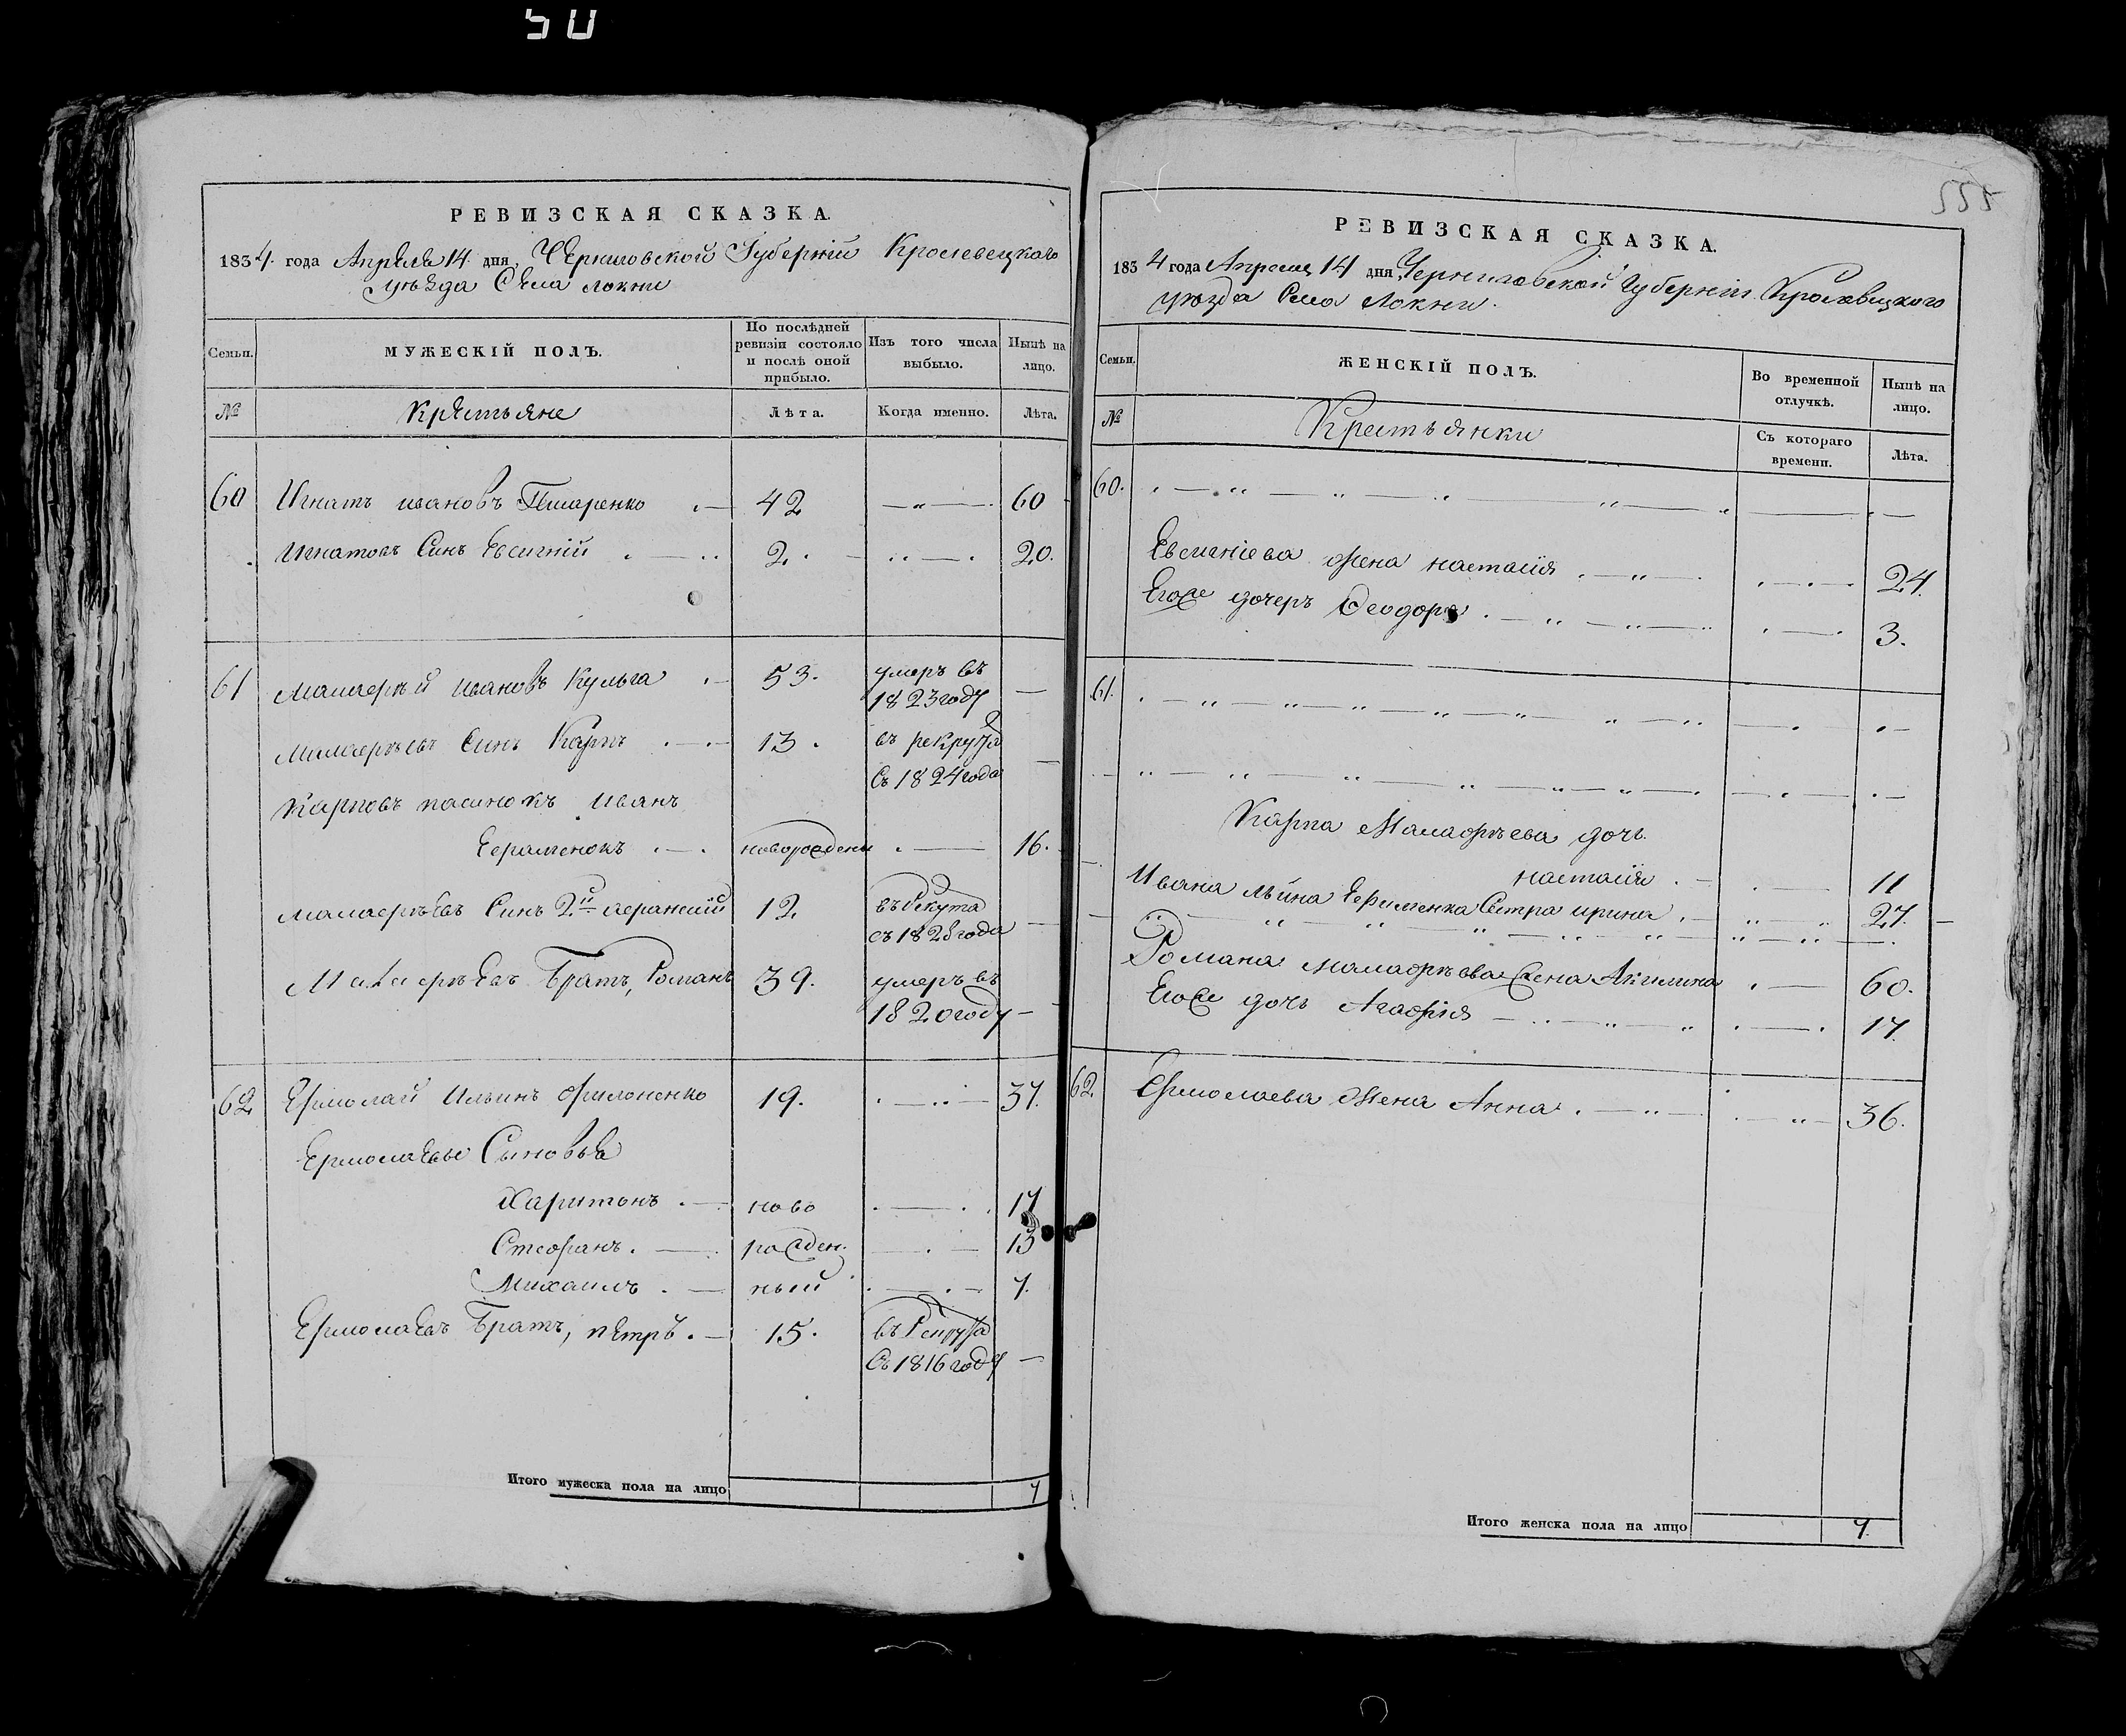 50
РЕВИЗСКАЯ СКАЗКА.
1834. года Апреля 14 дня, Черниговской Губернiи Кролевецкого
уезда Села Локни
Семьи.
МУЖЕСКІЙ ПОЛЪ.
По послѣдней ревизіи состояло и послѣ оной прибыло.
Изъ того числа выбыло.
Нынѣ на лицо.
№
Крестьяне
Лѣта.
Когда именно.
Лѣта.
60 Игнатъ ивановъ 42 60
Игнатовъ Синъ Евсигнiй 2. 20.
61 ивановъ Кулга 53. умеръ въ
1823 году
Синъ Карпъ 13. въ рекрута
Съ 1824 года
Карповъ пасинокъ иванъ
новорожденъ 16.
Синъ 2й 12. въ Рекрута
съ 1828 года
Братъ, Романъ 39. умеръ въ
1820 году
62 Ермолай Ильинъ Филоненко 19. 37.
Ермолаевы Сыновья
Харитонъ ново 17
Стефанъ. рожден. 13
Михаилъ ный 7.
Ермолаевъ Братъ, петръ. 15. въ Рекрута
Съ 1816 году
Итого мужеска пола на лицо 7
555
РЕВИЗСКАЯ СКАЗКА.
1834 года Апреля 14 дня, Черниговской Губернiи Кролевецкого
уезда Села Локни.
Семьи.
ЖЕНСКІЙ ПОЛЪ.
Во временной отлучкѣ.
Нынѣ на лицо.
№
Крестьянки
Съ котораго времени.
Лѣта.
60.
Евсигнiева жена настасiя 24.
Егоже дочеръ Феодора 3.
61.
Карпа дочь
настасiя 11
Ивана Сестра ирина 27.
Романа жена Акилина 60.
Егоже дочь Агафiя 17.
62. Ермолаева Жена Анна 36.
Итого женска пола на лицо 7.